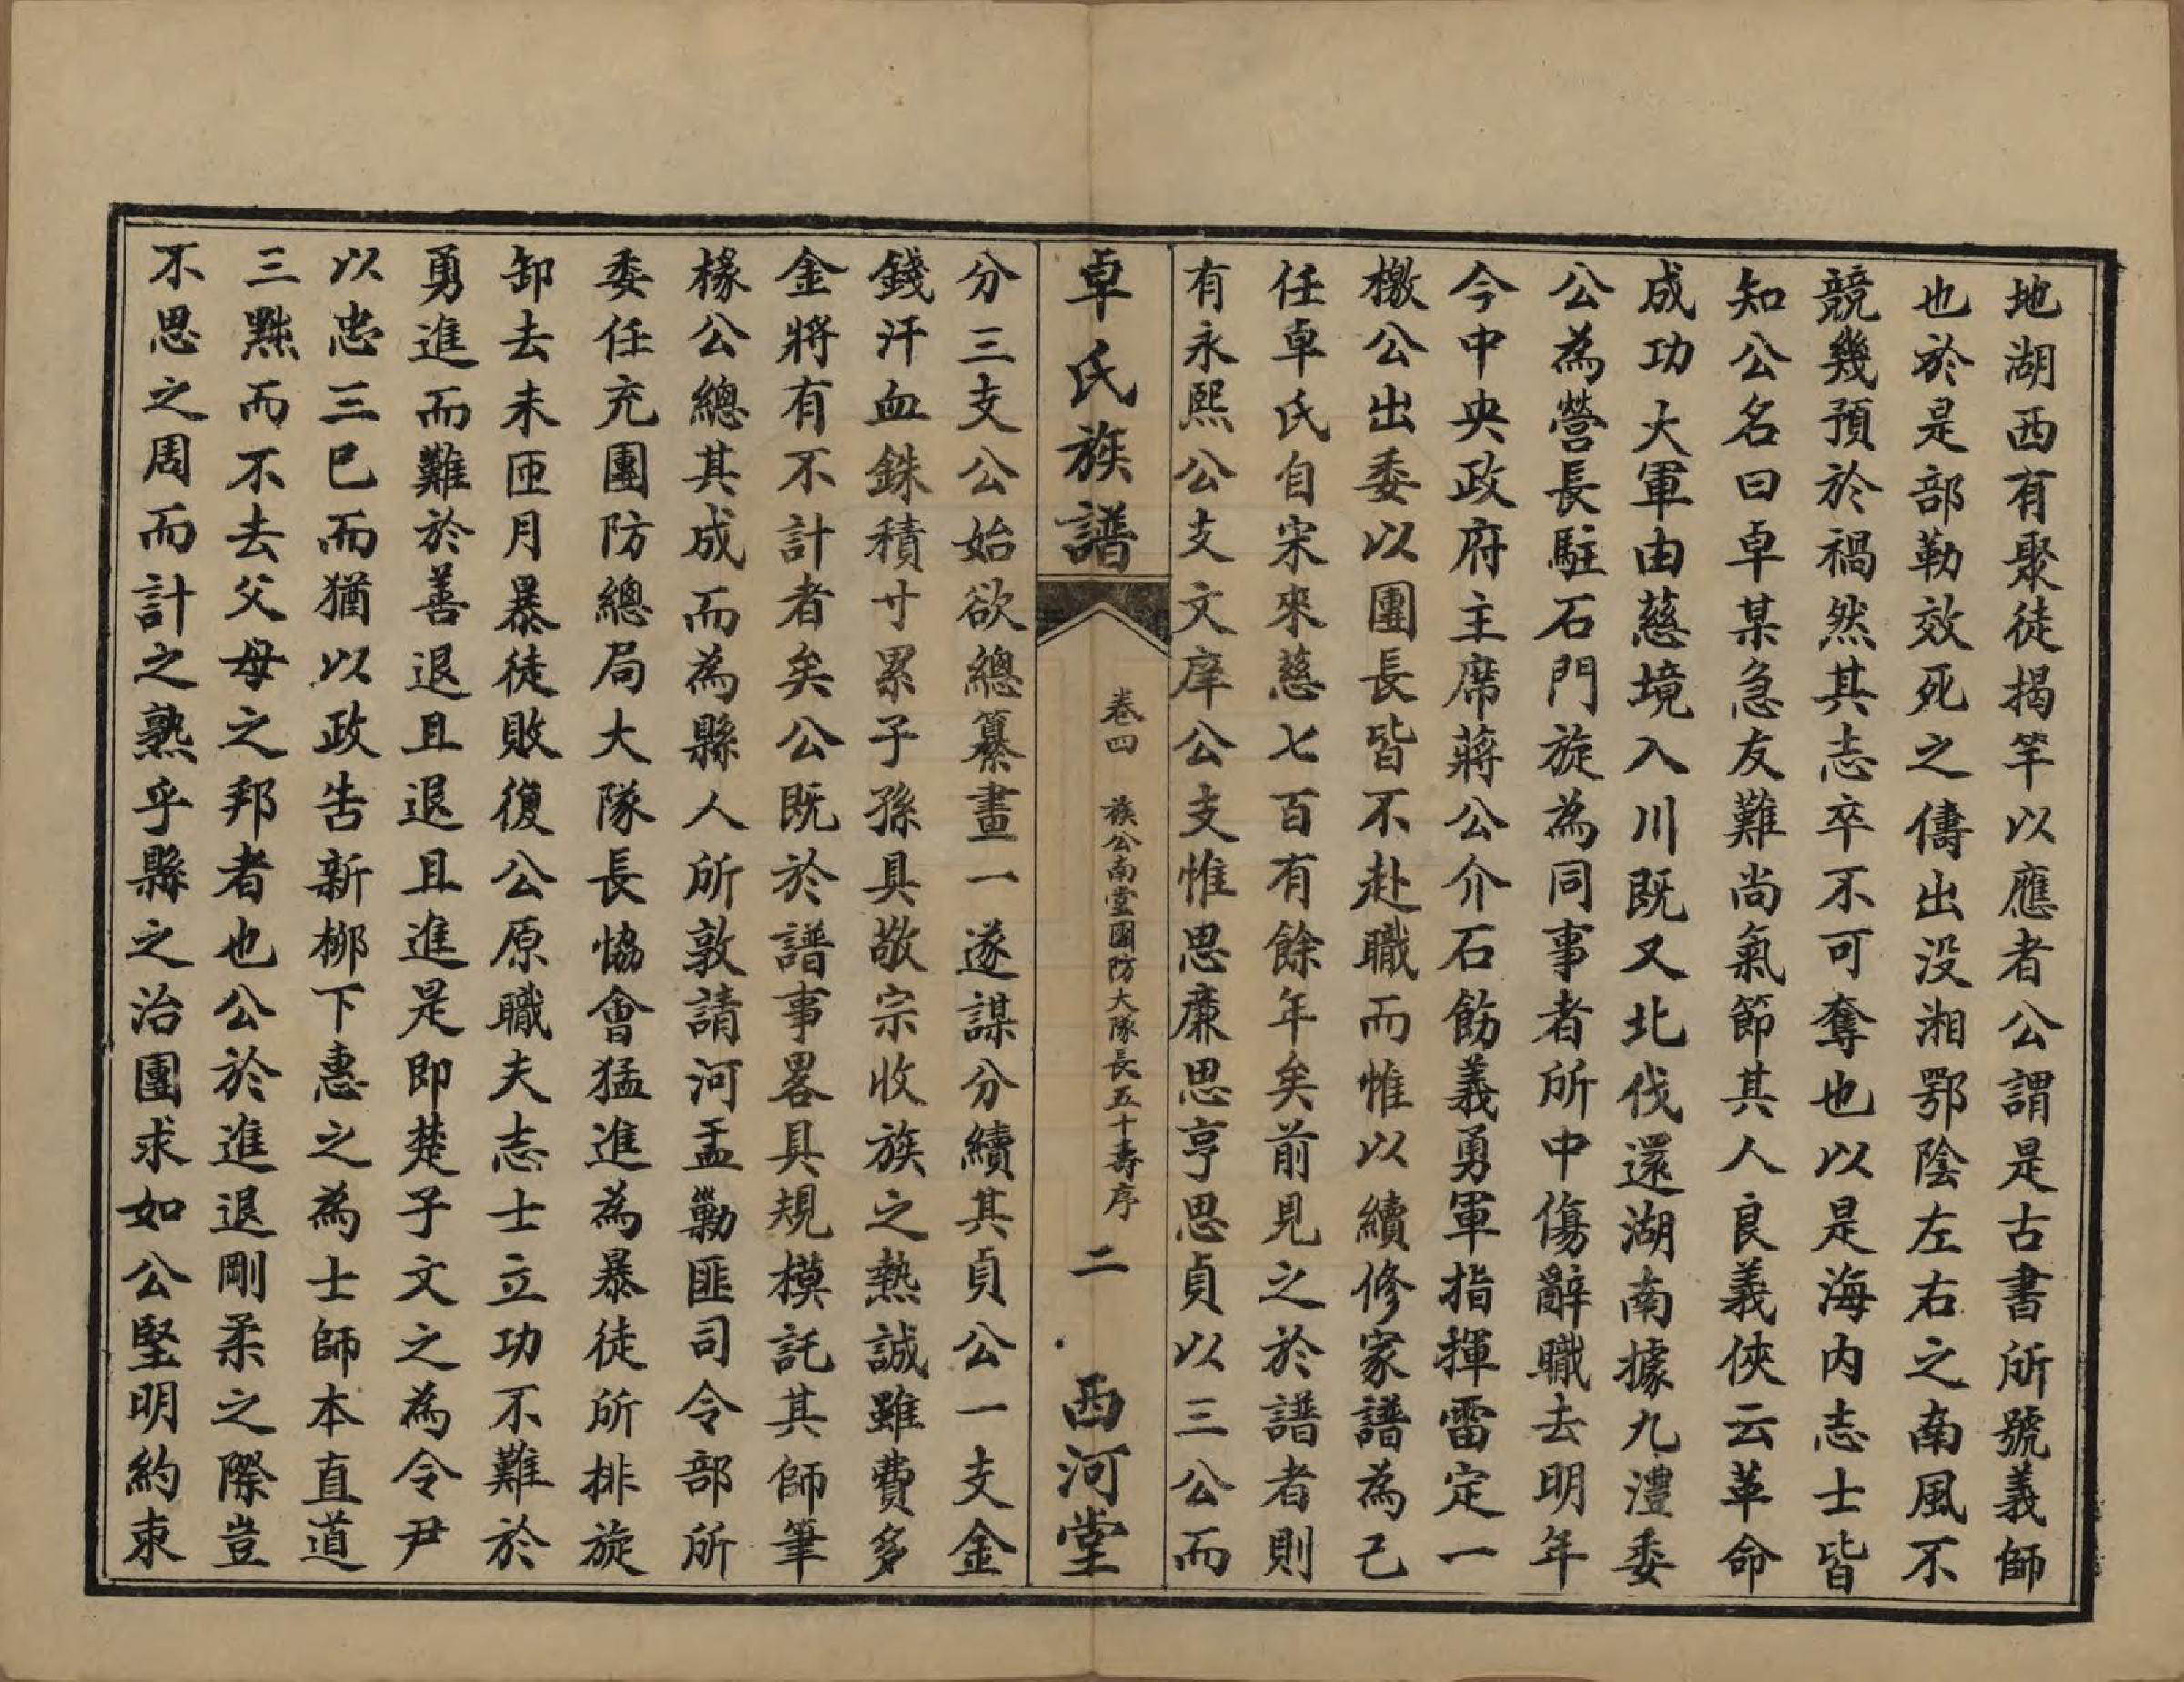 地湖西有聚徒揭竿以應者公謂是古書所號義師
也於是部勒效死之儔出没湘鄂陰左右之南風不
競幾預於禍然其志卒不可奪也以是海内志士皆
知公名曰卓某急友難尚氣節其人良義俠云革命
成功大軍由慈境入川既又北伐還湖南據九澧委
公為營長駐石門旋為同事者所中傷辭職去明年
今中央政府主席蔣公介石飭義勇軍指揮雷定一
檄公出委以團長皆不赴職而惟以續修家譜為己
任卓氏自宋來慈七百有餘年矣前見之於譜者則
有永熙公支文庠公支惟思廉思亨思貞以三公而
卓氏族譜
卷四 族公南堂團防大隊長五十壽序 二
西河堂
分三支公始欲總纂畫一遂謀分續其貞公一支金
錢汗血銖積寸累子孫具敬宗收族之熱誠雖費多
金將有不計者矣公既於譜事畧具規模託其師筆
椽公總其成而為縣人所敦請河孟勦匪司令部所
委任充團防總局大隊長恊會猛進為暴徒所排旋
卸去未匝月暴徒敗復公原職夫志士立功不難於
勇進而難於善退且退且進是即楚子文之為令尹
以忠三已而猶以政告新栁下惠之為士師本直道
三黜而不去父母之邦者也公於進退剛柔之際豈
不思之周而計之熟乎縣之治團求如公堅明約束